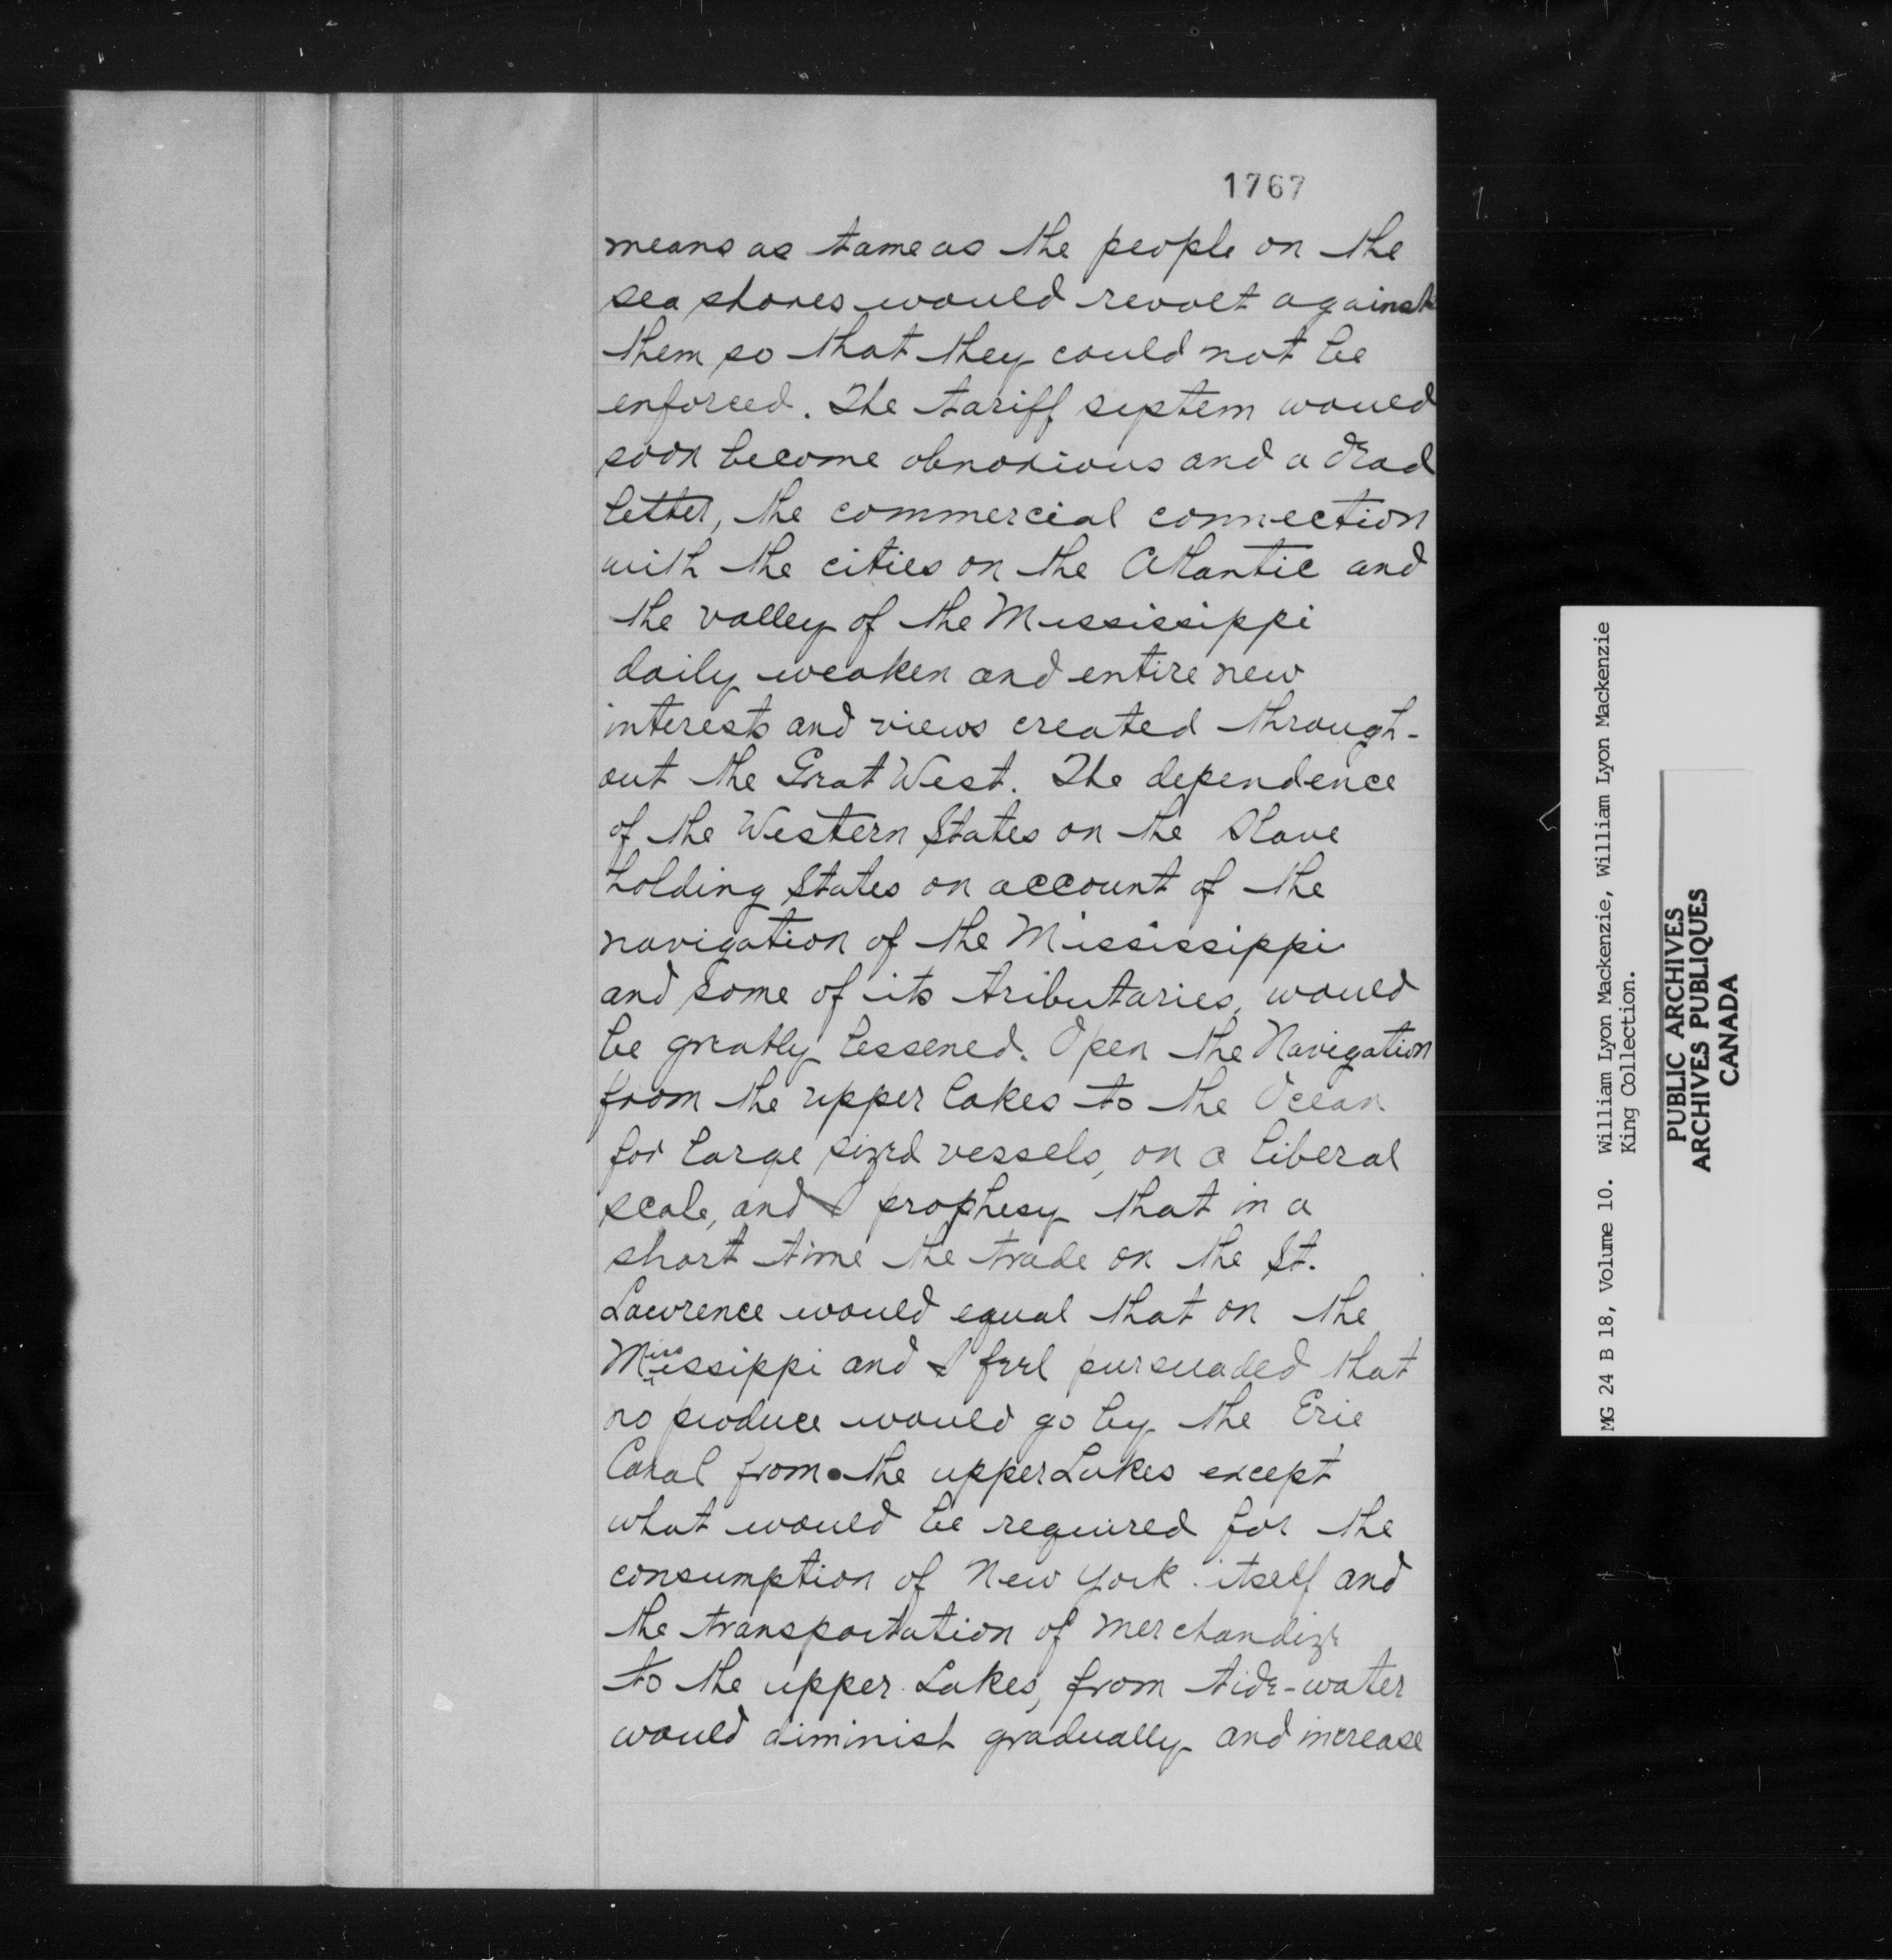 1767
means as tame as the people on the
sea shores would revolt against
them so that they could not be
enforced. The tariff system would
soon become obnoxious and a dead
letter, the commercial connection
with the cities on the Atlantic and
the valley of the Mississippi
daily weaken and entire new
interests and views created through-
out the Great West. The dependence
of the Western States on the Slave
holding States on account of the
navigation of the Mississippi
and some of its tributaries, would
be greatly lessened. Open the Navigation
from the upper lakes to the Ocean
for large sized vessels, on a liberal
scale, and I prophesy that in a
short time the trade on the St.
Lawrence would equal that on the
Mississippi and I feel pursuaded that
no produce would go by the Erie
Canal from the upper Lakes except
what would be required for the
consumption of New York itself and
the transportation of merchandize
to the upper Lakes, from tide-water
would diminish gradually and increase
MG 24 B 18, Volume 10. William Lyon Mackenzie, William Lyon Mackenzie
King Collection.
PUBLIC ARCHIVES
ARCHIVES PUBLIQUES
CANADA